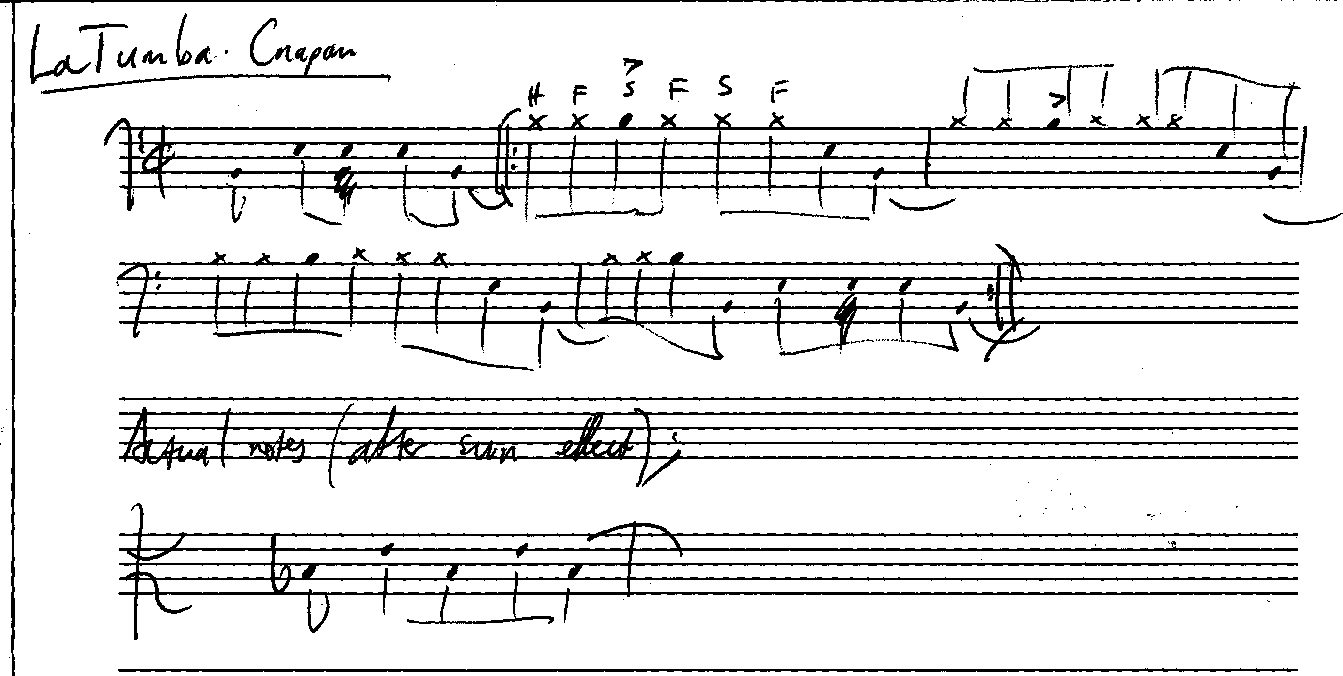 La Tumba.
H F S F S F
Actual notes (after swim effect);